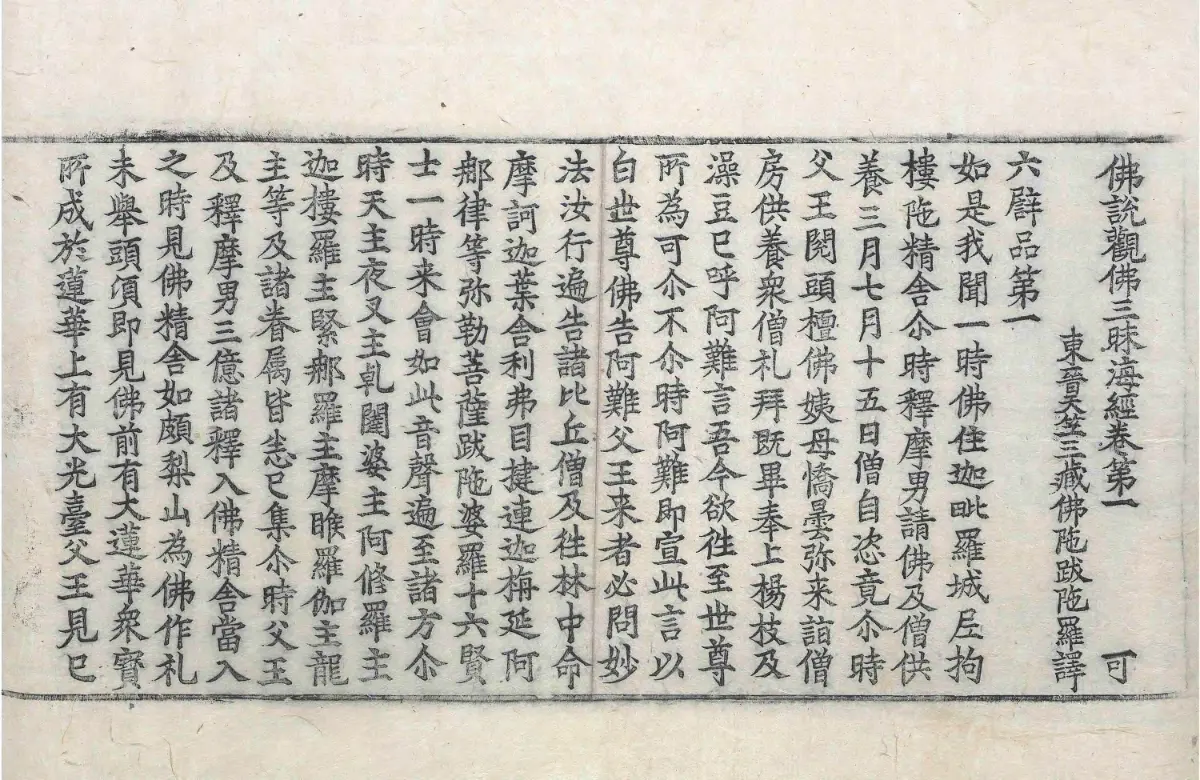 佛說觀佛三昧海經卷第一 可
東晉天竺三藏佛陁跋陁羅譯
六辟品第一
如是我聞一時佛住迦毗羅城尼拘
樓陁精舍尒時釋摩男請佛及僧供
養三月七月十五日僧自恣竟尒時
父王閱頭檀佛姨母憍曇弥来詣僧
房供養衆僧礼拜既畢奉上楊枝及
澡豆已呼阿難言吾今欲徃至世尊
所為可尒不尒時阿難即宣此言以
白世尊佛告阿難父王来者必問妙
法汝行遍告諸比丘僧及徃林中命
摩訶迦葉舍利弗目揵連迦栴延阿
那律等弥勒菩薩跋陁婆羅十六賢
士一時来會如此音聲遍至諸方尒
時天主夜叉主乹闥婆主阿脩羅主
迦樓羅主緊那羅主摩睺羅伽主龍
主等及諸眷属皆悉已集尒時父王
及釋摩男三億諸釋入佛精舍當入
之時見佛精舍如頗梨山為佛作礼
未舉頭湏即見佛前有大蓮華衆寳
所成於蓮華上有大光臺父王見已